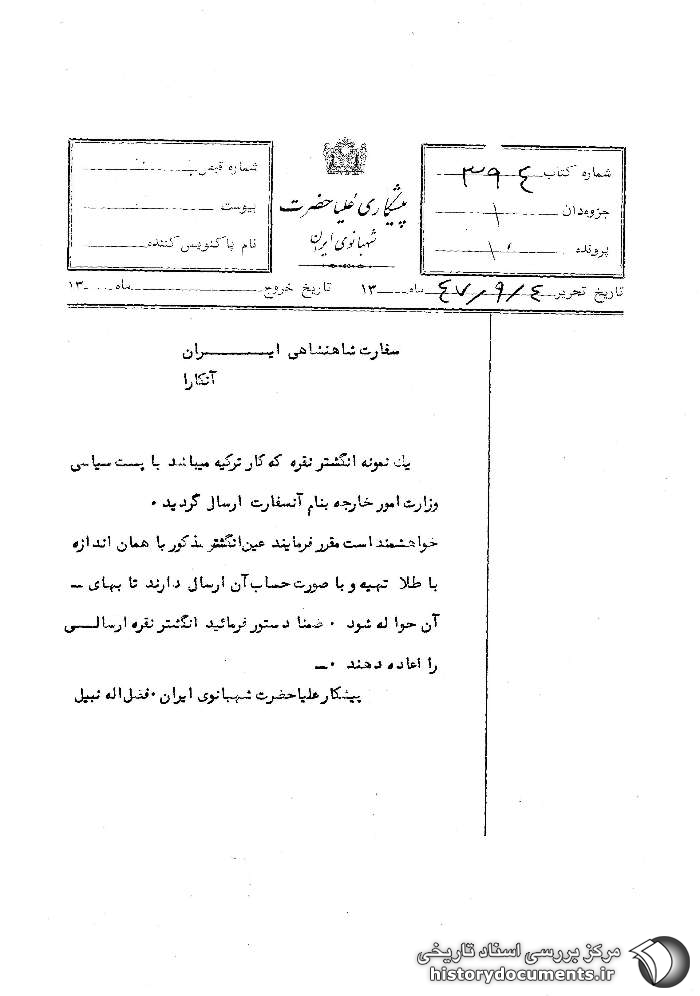 شماره کتاب ۳۹۴
جزوه‌دان ۱
پرونده ۱۰
پیشکاری علیاحضرت
شهبانوی ایران
شماره قبض
پیوست
نام پاکنویس کننده
تاریخ تحریر ۴۷/۹/۴ ماه ۱۳
تاریخ خروج ماه ۱۳
سفارت شاهنشاهی ایــــران
آنکارا
یك نمونه انگشتر نقره که کار ترکیه میباشد با پست سیاسی
وزارت امور خارجه بنام آنسفارت ارسال گردید ۰
خواهشمند است مقرر فرمایند عین انگشتر مذکور با همان اندازه
با طلا تهیه و با صورت حساب آن ارسال دارند تا بهای ـ
آن حواله شود ۰ ضمنا دستور فرمائید انگشتر نقره ارسالـــی
را اعاده دهند ۰ــ
پیشکار علیاحضرت شهبانوی ایران ۰ فضل اله نبیل
مرکز بررسی اسناد تاریخی
historydocuments.ir